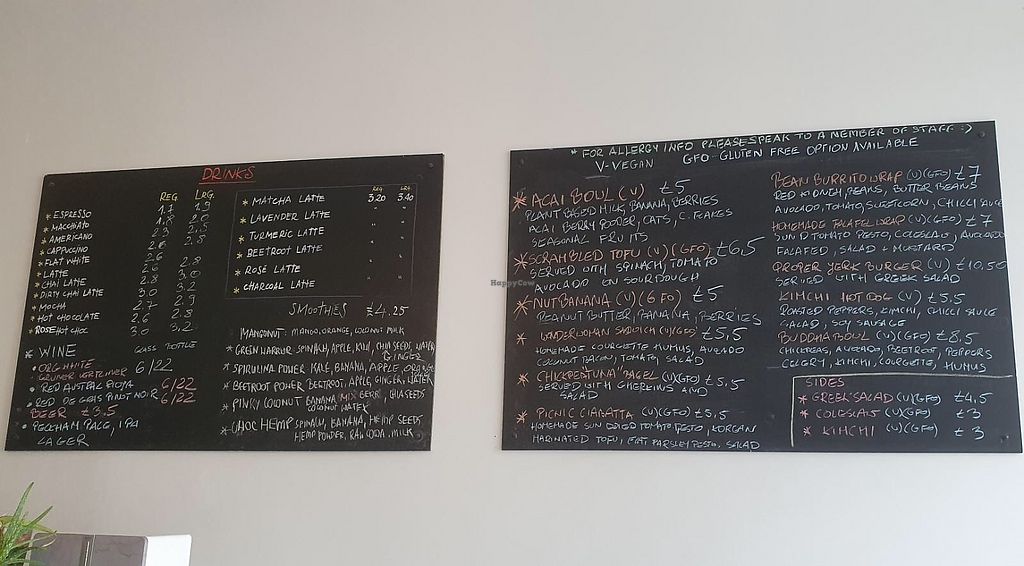 DRINKS
REG LRG.
* ESPRESSO 1.7 1.9
* MACCHIATO 1.8 2.0
* AMERICANO 2.3 2.5
* CAPPUCCINO 2.6 2.8
* FLAT WHITE 2.6
* LATTE 2.6 2.8
* CHAI LATTE 2.8 3.0
* DIRTY CHAI LATTE 3.0 3.2
* MOCHA 2.7 2.9
* HOT CHOCOLATE 2.6 2.8
* ROSE HOT CHOC 3.0 3.2
* WINE GLASS BOTTLE
• ORG WHITE 6/22
GRUNER VERTZINER
• RED AUSTRAL RIOJA 6/22
• RED DE GRAS PINOT NOIR 6/22
BEER £3.5
• PECKHAM PALE, IPA
LAGER
REG LRG
* MATCHA LATTE 3.20 3.40
* LAVENDER LATTE " "
* TURMERIC LATTE " "
* BEETROOT LATTE " "
* ROSE LATTE " "
* CHARCOAL LATTE " "
SMOOTHIES £4.25
MANGONUT: MANGO, ORANGE, COCONUT MILK
* GREEN WARRIOR SPINACH, APPLE, KIWI, CHIA SEEDS, WATER
GINGER
* SPIRULINA POWER KALE, BANANA, APPLE, ORANGE
* BEETROOT POWER BEETROOT, APPLE, GINGER, WATER
* PINKY COCONUT BANANA MIX BERR. CHIA SEEDS
COCONUT WATER
* CHOC HEMP SPINACH, BANANA, HEMP SEEDS
HEMP POWDER, RAW COCOA, MILK
* FOR ALLERGY INFO PLEASE SPEAK TO A MEMBER OF STAFF :)
V-VEGAN GFO-GLUTEN FREE OPTION AVAILABLE
* ACAI BOUL (V) £5
PLANT BASED MILK, BANANA, BERRIES
ACAI BERRY PODER, OATS, C. FLAKES
SEASONAL FRUITS
* SCRAMBLED TOFU (V)(GFO) £6,5
SERVED WITH SPINACH, TOMATO
AVOCADO ON SOURDOUGH
* NUTBANANA (V)(GFO) £5
PEANUT BUTTER, BANANA, BERRIES
* WONDERWOMAN SANDWICH (V)(GFO) £5,5
HOMEMADE COURGETTE HUMUS, AVOCADO
COCONUT BACON, TOMATO, SALAD
* CHICKPEATUNA BAGEL (V)(GFO) £5,5
SERVED WITH GHERKINS AND
SALAD
* PICNIC CIABATTA (V)(GFO) £5,5
HOMEMADE SUN DRIED TOMATO PESTO, KOREAN
MARINATED TOFU, FLAT PARSLEY PESTO, SALAD
BEAN BURRITO WRAP (V)(GFO) £7
RED KIDNEY BEANS, BUTTER BEANS
AVOCADO, TOMATO, SWEETCORN, CHILLI SAUCE
HOMEMADE FALAFEL WRAP (V)(GFO) £7
SUN D TOMATO PESTO, COLESLAW, AVOCADO
FALAFEL, SALAD + MUSTARD
PROPER JERK BURGER (V) £10.50
SERVED WITH GREEK SALAD
KIMCHI HOT DOG (V) £5.5
ROASTED PEPPERS, KIMCHI, CHILLI SAUCE
SALAD, SOY SAUSAGE
BUDDHA BOWL (V)(GFO) £8,5
CHICKPEAS, AVOCADO, BEETROOT, PEPPERS
CELERY, KIMCHI, COURGETTE, HUMUS
SIDES
* GREEK SALAD (V)(GFO) £4,5
* COLESLAW (V)(GFO) £3
* KIMCHI (V)(GFO) £3
HappyCow